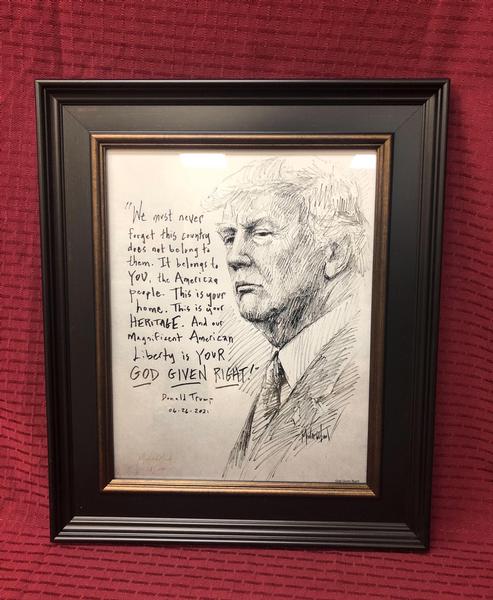 "We must never
forget this country
does not belong to
them. It belongs to
YOU, the American
people. This is your
home. This is your
HERITAGE. And our
Magnificent American
Liberty is YOUR
GOD GIVEN RIGHT!"
Donald Trump
06-26-2021